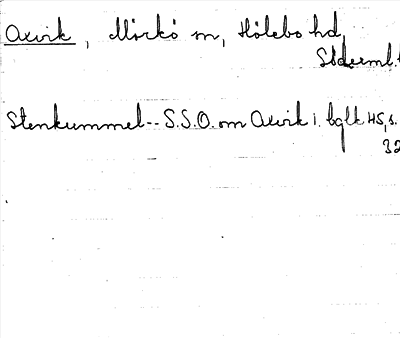 Oxvik, Mörkö sn, Hölebo hd,
Söderml.
Stenkummel-- S.S.O. om Oxvik i bglt HS, s.
32